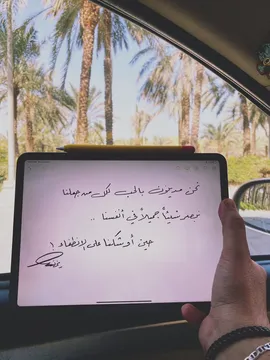 نحن مدينون بالحب لكل من جعلنا
نبصر شيئاً جميلاً في أنفسنا ..
حين أوشكنا على الإنطفاء !